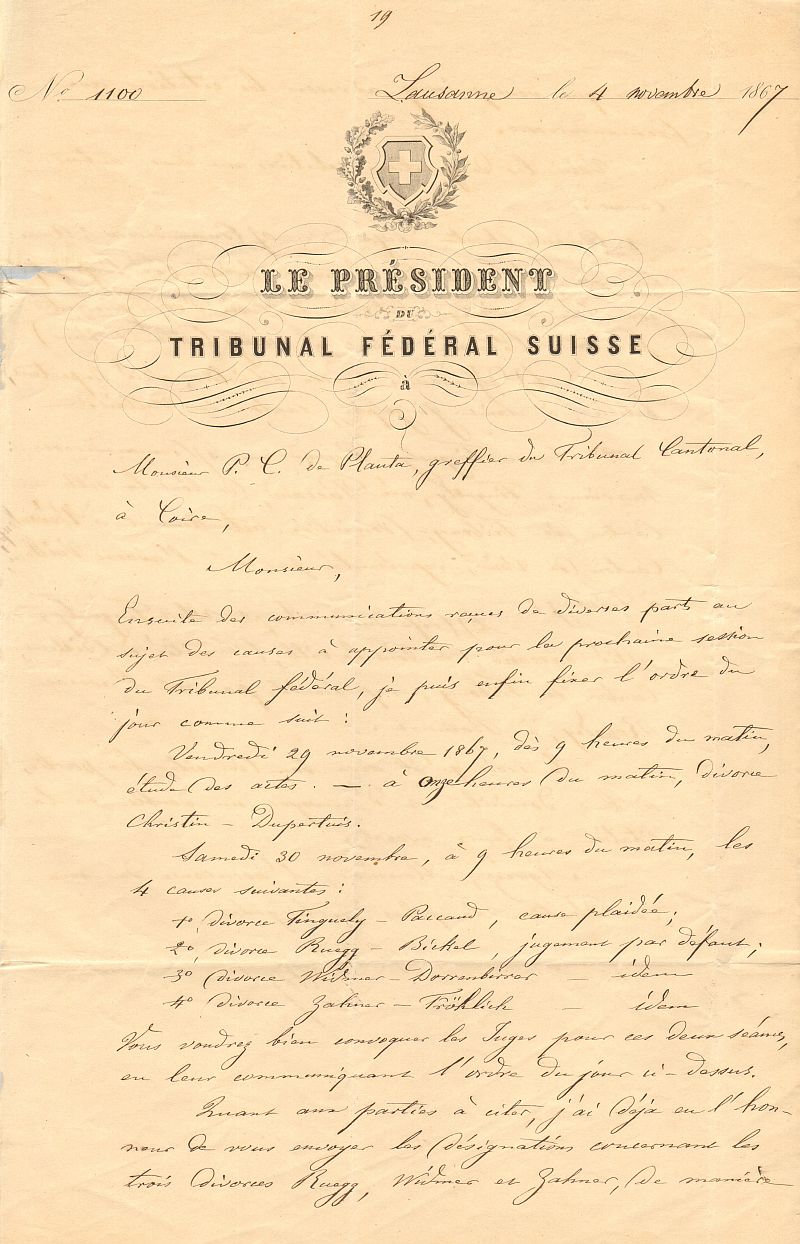 19
No. 1100 Lausanne le 4 novembre 1867
LE PRÉSIDENT
DU
TRIBUNAL FÉDÉRAL SUISSE
à
Monsieur P. C. de Planta, greffier du Tribunal Cantonal,
à Coire,
Monsieur,
Ensuite des communications reçues de diverses parts au
sujet des causes à appointer pour la prochaine session
du Tribunal fédéral, je puis enfin fixer l'ordre du
jour comme suit :
Vendredi 29 novembre 1867, dès 9 heures du matin,
étude des actes. — à onze heures du matin, divorce
Christin – Dupertuis.
Samedi 30 novembre, à 9 heures du matin, les
4 causes suivantes :
1o divorce Tinguely – Paccaud, cause plaidée ;
2o divorce Ruegg – Bickel, jugement par défaut ;
3o divorce Widmer – Dorrenbirrer – idem
4o divorce Zahner – Fröhlich – idem
Vous voudrez bien convoquer les Juges pour ces deux séances,
en leur communiquant l'ordre du jour ci-dessus.
Quant aux parties à citer, j'ai déjà eu l'hon-
neur de vous envoyer les désignations concernant les
trois divorces Ruegg, Widmer et Zahner, de manière